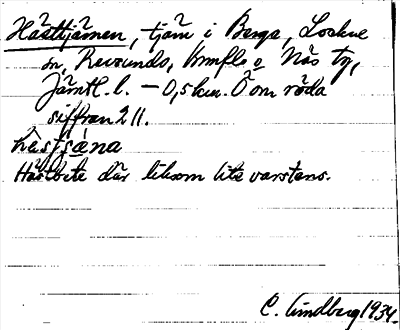 Hästtjärnen, tjärn i Berga, Lockne
sn, Revsunds, Brunflo o Näs tg,
Jämtl. l. – 0,5 km. Ö om röda
siffran 211.
hästjæ̂na
Hästbete där liksom lite varstans.
C. Lindberg 1934.